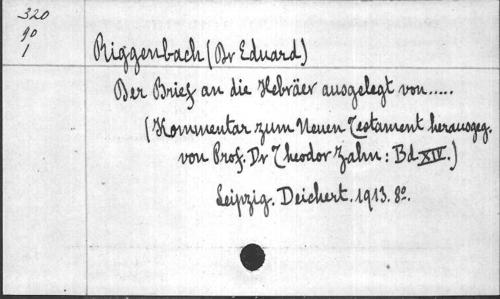 320
90
1
Riggenbach (Dr Eduard)
Der Brief an die Hebräer ausgelegt von.....
(Kommentar zum Neuen Testament herausgeg.
von Prof. Dr Theodor Zahn: Bd XIV.)
Leipzig. Deichert. 1913. 8º.